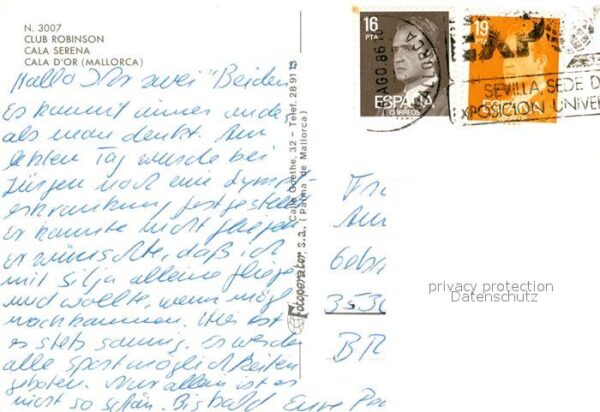 N. 3007
CLUB ROBINSON
CALA SERENA
CALA D'OR (MALLORCA)
Hallo Ihr zwei "Beiden
Es kommt immer anders
als man denkt. Am
letzten Tag wurde bei
Jürgen noch eine Lymph
erkrankung festgestellt
Er konnte nicht fliegen
Er wünschte, daß ich
mit Silja alleine fliege
und wollte, wenn mögl
nachkommen. Hier ist
es stets sonnig. Es werden
alle Sportmöglichkeiten
geboten. Nur allein ist es
nicht so schön. Bis bald Eure
Fotoperator, s.a. Calle Goethe, 32 - Telef. 28 91 13
(Palma de Mallorca)
16
PTA
ESPAÑA
CORREOS
19
PTA
AGO 86
MALLORCA
EXPO
SEVILLA SEDE D
XPOSICION UNIVER
Am
Gebr
3530
privacy protection
Datenschutz